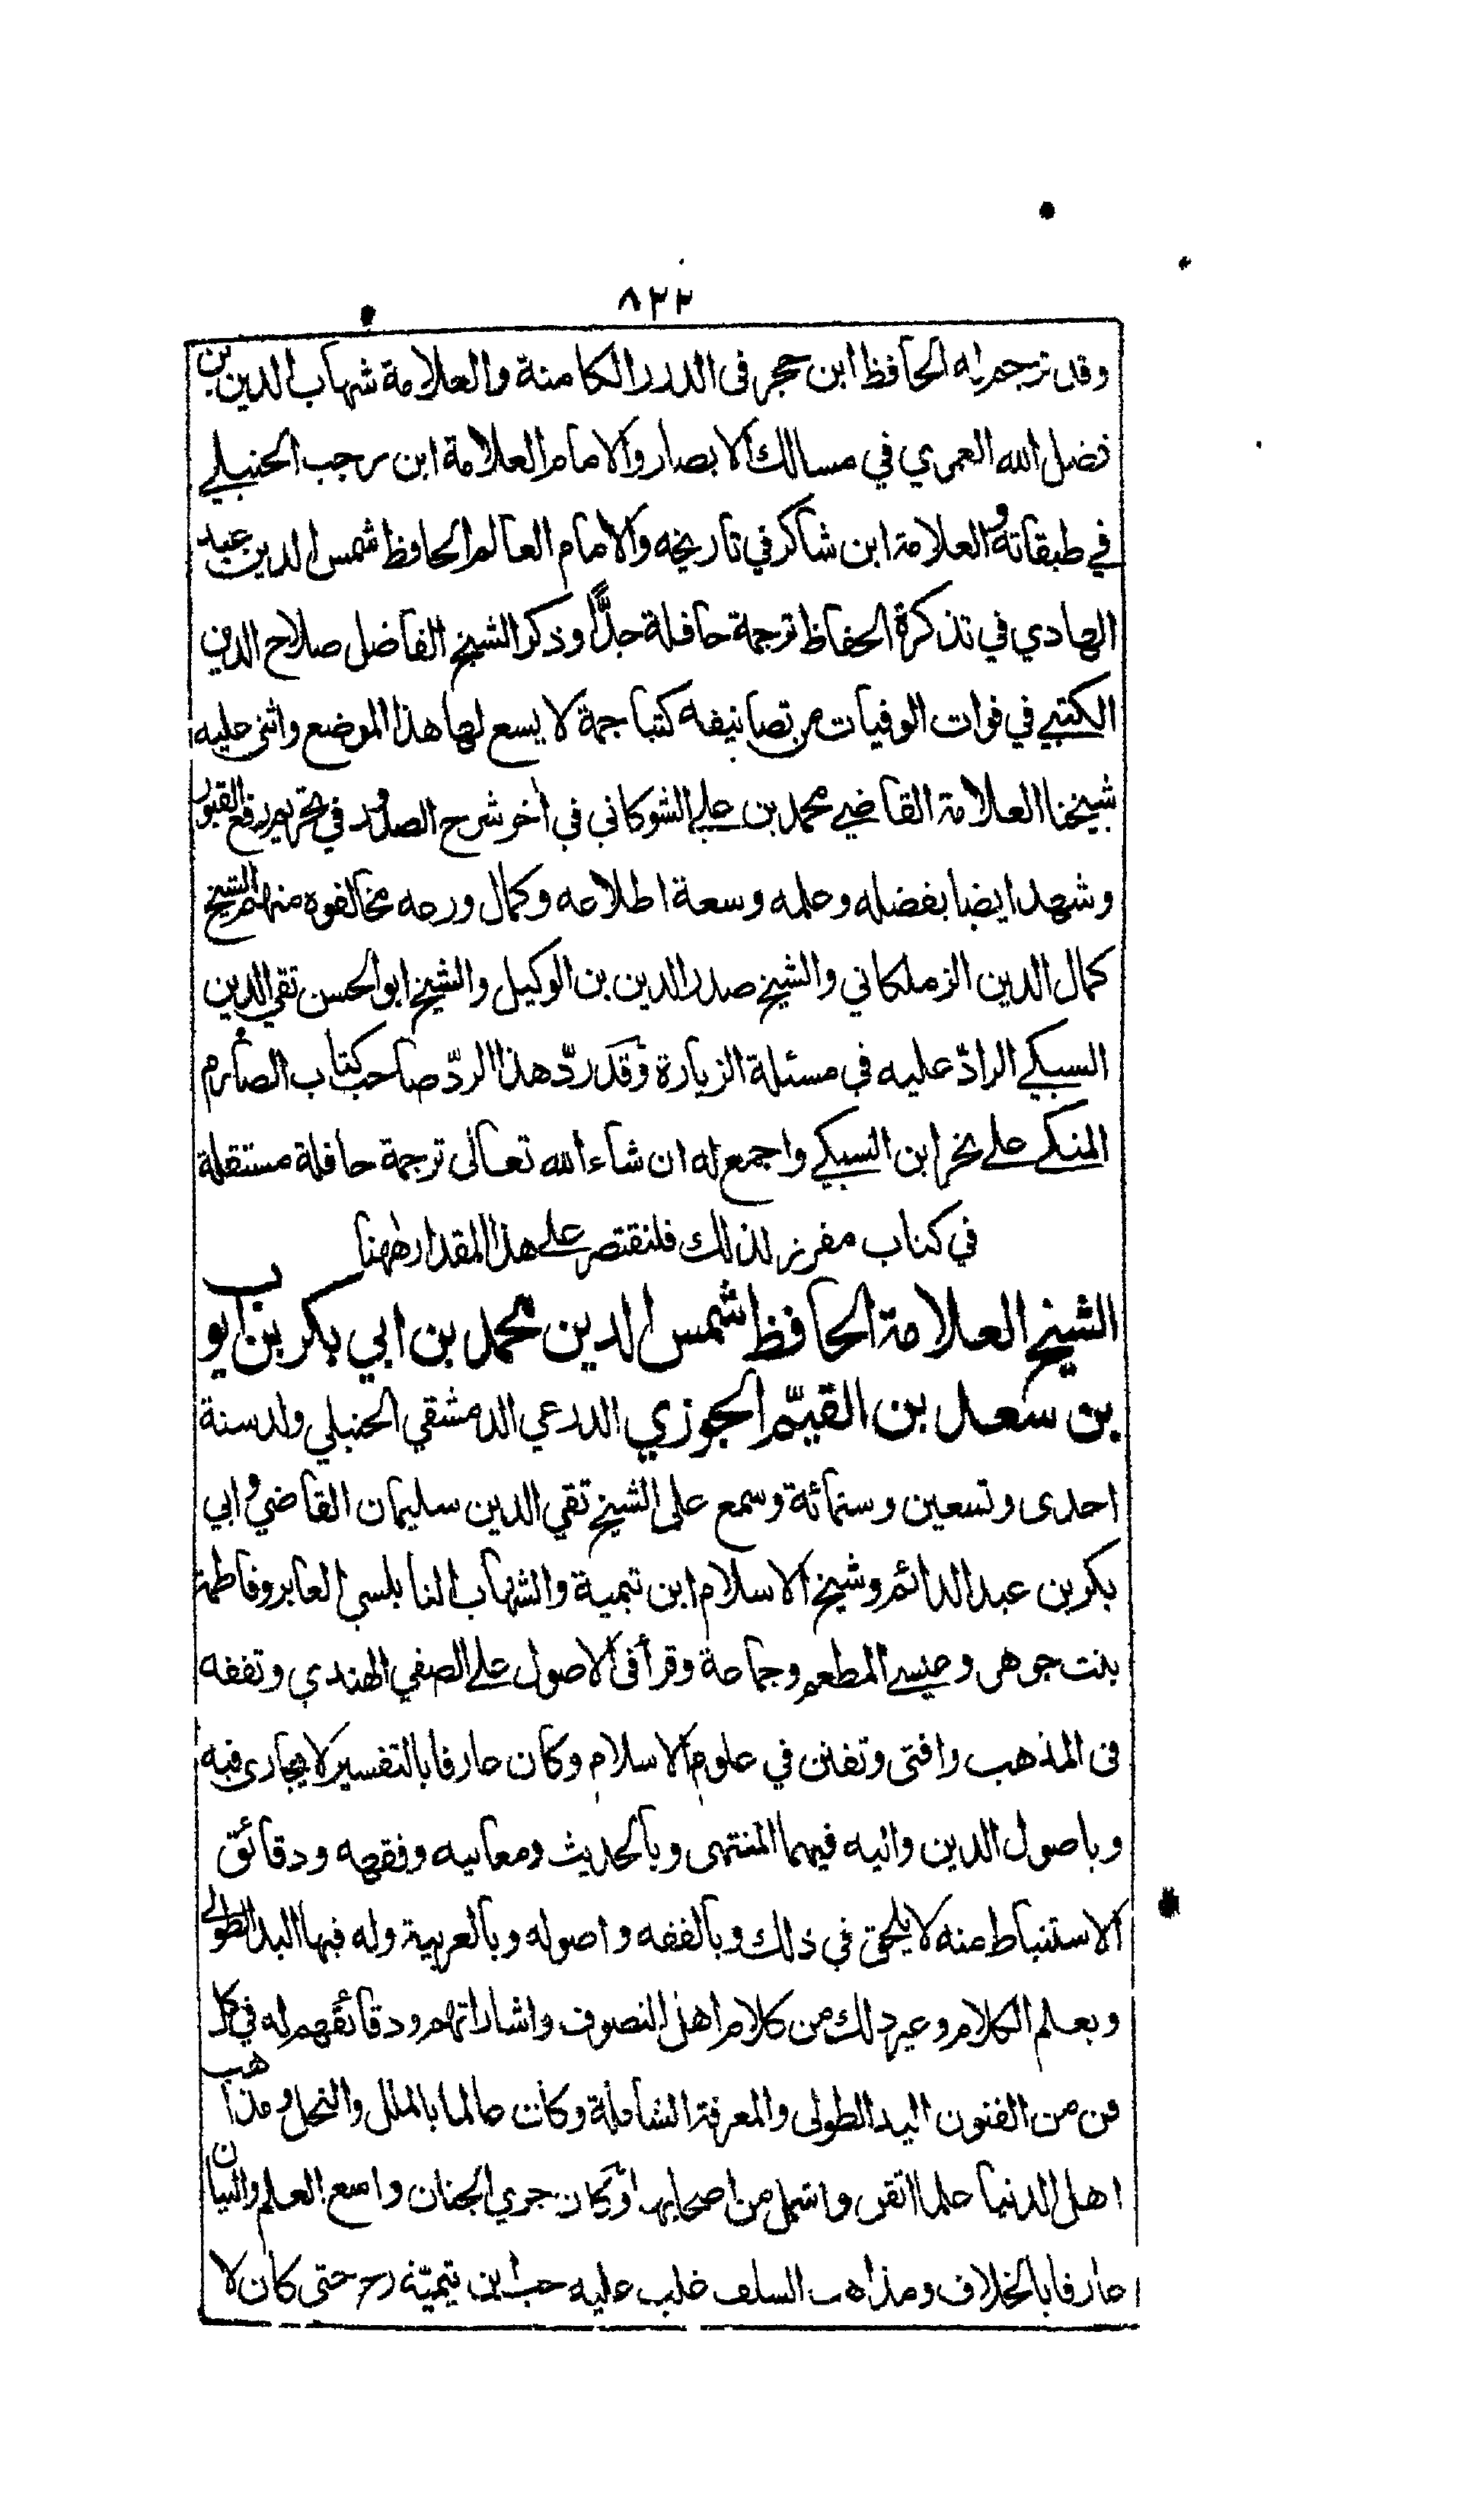 ٨٢٢
وقد ترجم له الحافظ ابن حجر في الدرر الكامنة والعلامة شهاب الدين بن
فضل الله العمري في مسالك الابصار والامام العلامة ابن رجب الحنبلي
في طبقاته والعلامة ابن شاكر في تاريخه والامام العالم الحافظ شمس الدين عبد
الهادي في تذكرة الحفاظ ترجمة حافلة جدًّا وذكر الشيخ الفاضل صلاح الدين
الكتبي في فوات الوفيات من تصانيفه كتبا جمة لا يسع لها هذا الموضع واثنى عليه
شيخنا العلامة القاضي محمد بن علي الشوكاني في أخر شرح الصدور في تحريم رفع القبور
وشهد ايضا بفضله وعلمه وسعة اطلاعه وكمال ورعه مخالفوه منهم الشيخ
كمال الدين الزملكاني والشيخ صدر الدين بن الوكيل والشيخ ابو الحسن تقي الدين
السبكي الرادّ عليه في مسئلة الزيارة وقد ردّ هذا الردّ صاحب كتاب الصارم
المنكي على نحر ابن السبكي واجمع له ان شاء الله تعالى ترجمة حافلة مستقلة
في كتاب مفرز لذلك فلنقتصر على هذا المقدار ههنا
الشيخ العلامة الحافظ شمس الدين محمد بن ابي بكر بن ايوب
بن سعد بن القيّم الجوزي الدرعي الدمشقي الحنبلي ولد سنة
احدى وتسعين وستمائة وسمع على الشيخ تقي الدين سليمان القاضي وابي
بكر بن عبد الدائم وشيخ الاسلام ابن تيمية والشهاب النابلسي العابر وفاطمة
بنت جوهر وعيسى المطعم وجماعة وقرأ في الاصول على الصفي الهندي وتفقه
في المذهب وافتى وتفنن في علوم الاسلام وكان عارفا بالتفسير لا يجارى فيه
وباصول الدين واليه فيهما المنتهى وبالحديث ومعانيه وفقهه ودقائق
الاستنباط منه لا يلحق في ذلك وبالفقه واصوله وبالعربية وله فيها اليد الطولى
وبعلم الكلام وغير ذلك من كلام اهل التصوف واشاراتهم ودقائقهم له في كل
فن من الفنون اليد الطولى والمعرفة الشاملة وكان عالما بالملل والنحل ومذاهب
اهل الدنيا علما اتقن واشمل من اصحابها وكان جري الجنان واسع العلم والبيان
عارفا بالخلاف ومذاهب السلف غلب عليه حب ابن تيميّة رح حتى كان لا